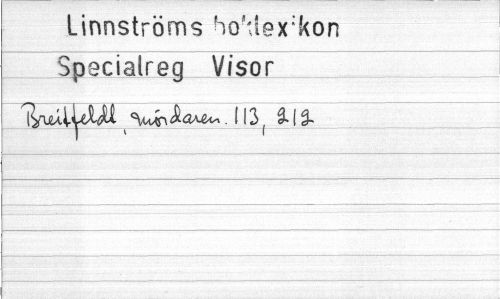 Linnströms boklexikon
Specialreg Visor
Breitfeldt, mördaren. 113, 212